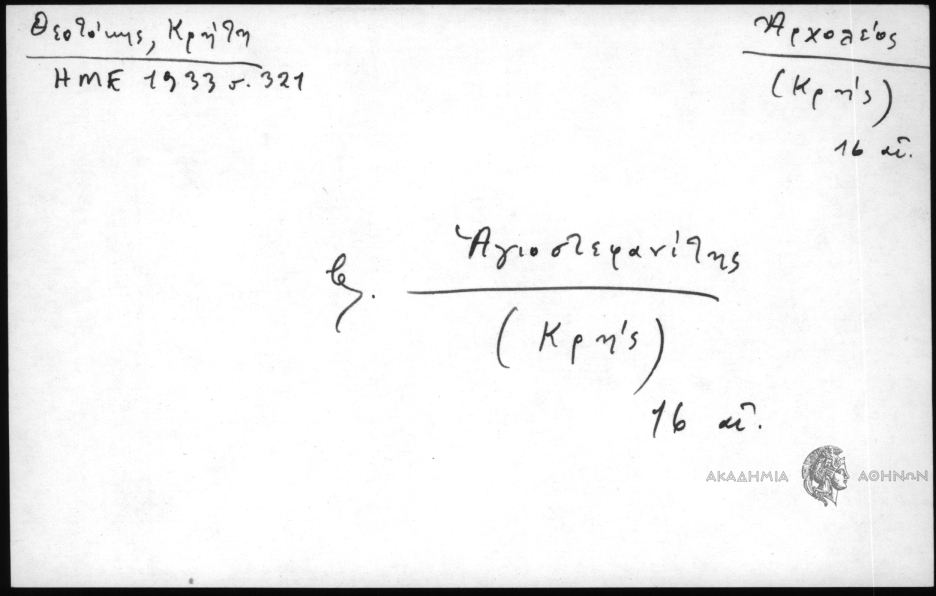 Θεοτόκης, Κρήτη
ΗΜΕ 1933 σ. 321
Ἀρχολεῖος
(Κρής)
16 αἰ.
β.
Ἁγιοστεφανίτης
(Κρής)
16 αἰ.
ΑΚΑΔΗΜΙΑ ΑΘΗΝΩΝ